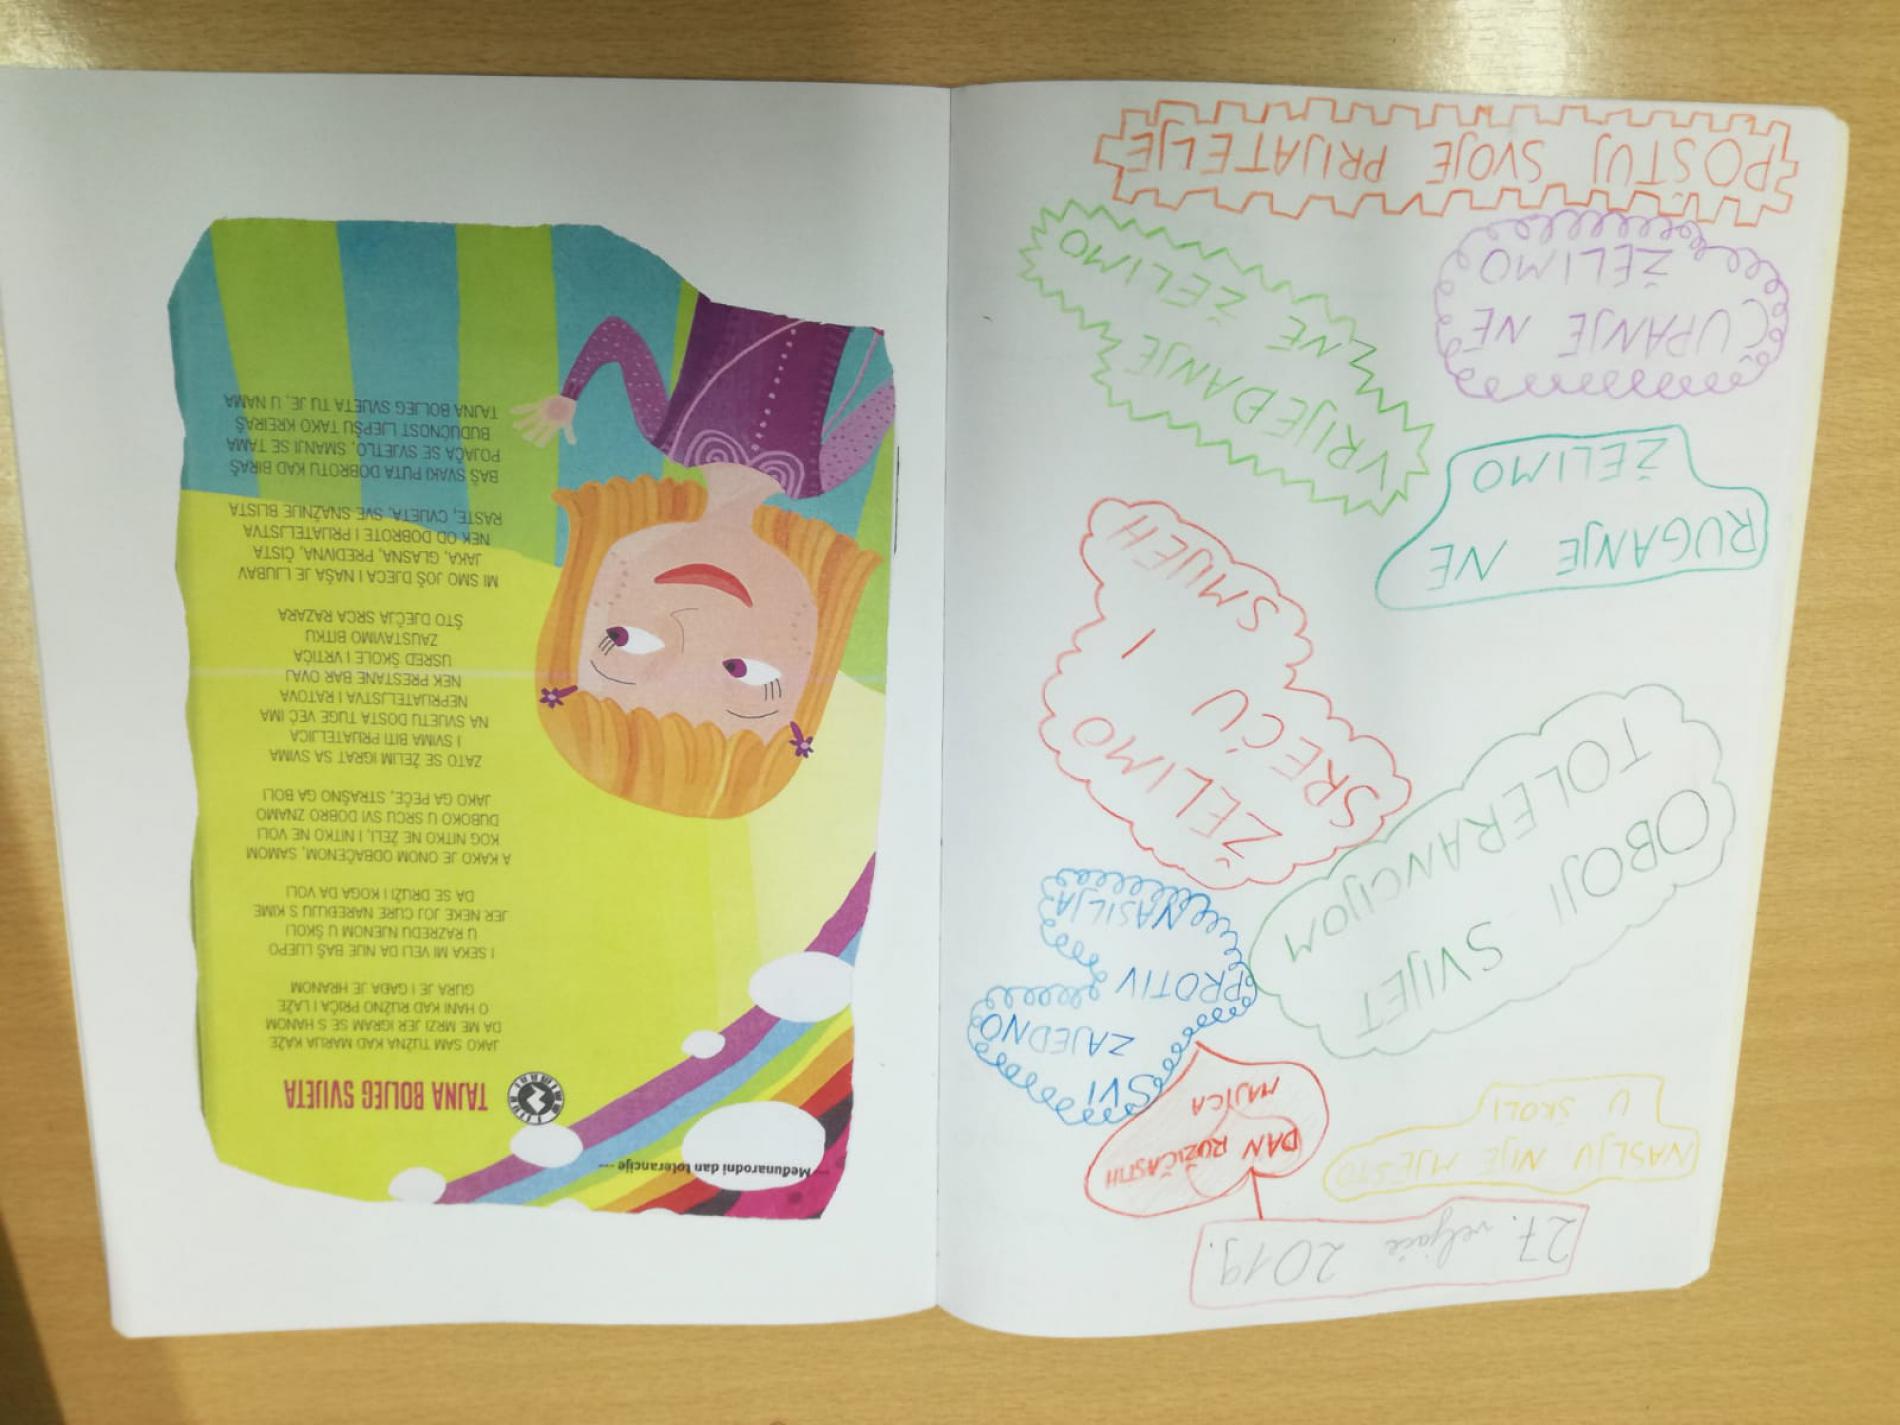 27. veljače 2019.
DAN RUŽIČASTIH
MAJICA
NASILJU NIJE MJESTO
U ŠKOLI
SVI
ZAJEDNO
PROTIV
NASILJA
OBOJI SVIJET
TOLERANCIJOM
ŽELIMO
SREĆU
I
SMIJEH
RUGANJE NE
ŽELIMO
VRIJEĐANJE
NE ŽELIMO
ČUPANJE NE
ŽELIMO
POŠTUJ SVOJE PRIJATELJE
--- Međunarodni dan tolerancije ---
TAJNA BOLJEG SVIJETA
JAKO SAM TUŽNA KAD MARIJA KAŽE
DA ME MRZI JER IGRAM SE S HANOM
O HANI KAD RUŽNO PRIČA I LAŽE
GURA JE I GAĐA JE HRANOM
I SEKA MI VELI DA NIJE BAŠ LIJEPO
U RAZREDU NJENOM U ŠKOLI
JER NEKE JOJ CURE NAREĐUJU S KIME
DA SE DRUŽI I KOGA DA VOLI
A KAKO JE ONOM ODBAČENOM, SAMOM
KOG NITKO NE ŽELI, I NITKO NE VOLI
DUBOKO U SRCU SVI DOBRO ZNAMO
JAKO GA PEČE, STRAŠNO GA BOLI
ZATO SE ŽELIM IGRAT SA SVIMA
I SVIMA BITI PRIJATELJICA
NA SVIJETU DOSTA TUGE VEĆ IMA
NEPRIJATELJSTVA I RATOVA
NEK PRESTANE BAR OVAJ
USRED ŠKOLE I VRTIĆA
ZAUSTAVIMO BITKU
ŠTO DJEČJA SRCA RAZARA
MI SMO JOŠ DJECA I NAŠA JE LJUBAV
JAKA, GLASNA, PREDIVNA, ČISTA
NEK OD DOBROTE I PRIJATELJSTVA
RASTE, CVJETA, SVE SNAŽNIJE BLISTA
BAŠ SVAKI PUTA DOBROTU KAD BIRAŠ
POJAČA SE SVJETLO, SMANJI SE TAMA
BUDUĆNOST LJEPŠU TAKO KREIRAŠ
TAJNA BOLJEG SVIJETA TU JE, U NAMA